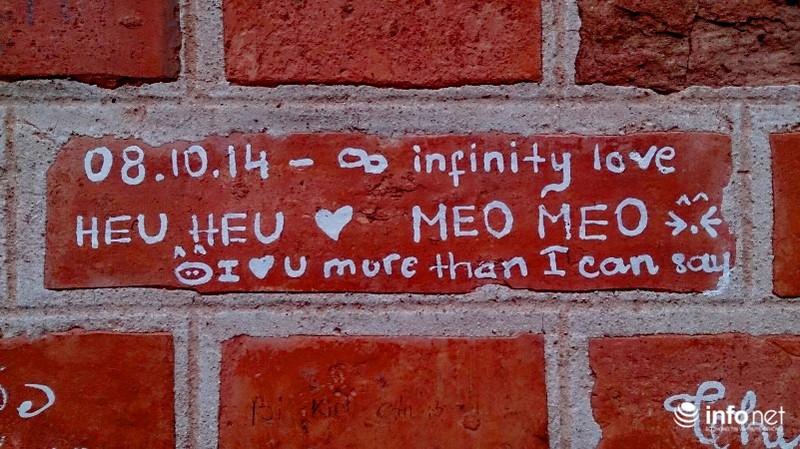 08.10.14 - ∞ infinity love
HEU HEU ♥ MEO MEO >.<
I ♥ U more than I can say
infonet